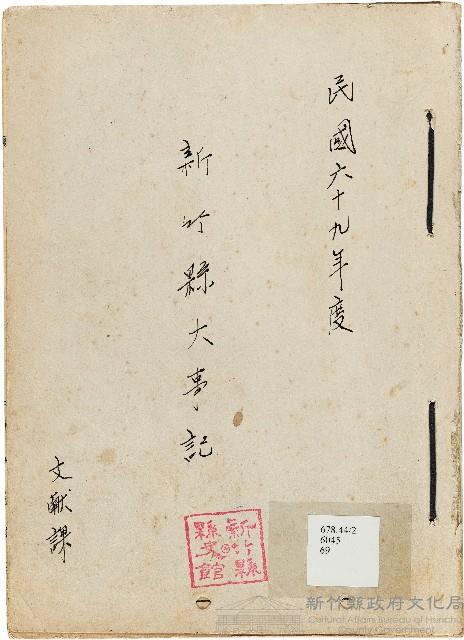 民國六十九年度
新竹縣大事記
文獻課
新竹縣
縣史館
678.44/2
6045
69
新竹縣政府文化局
Cultural Affairs Bureau of Hsinchu
County Government